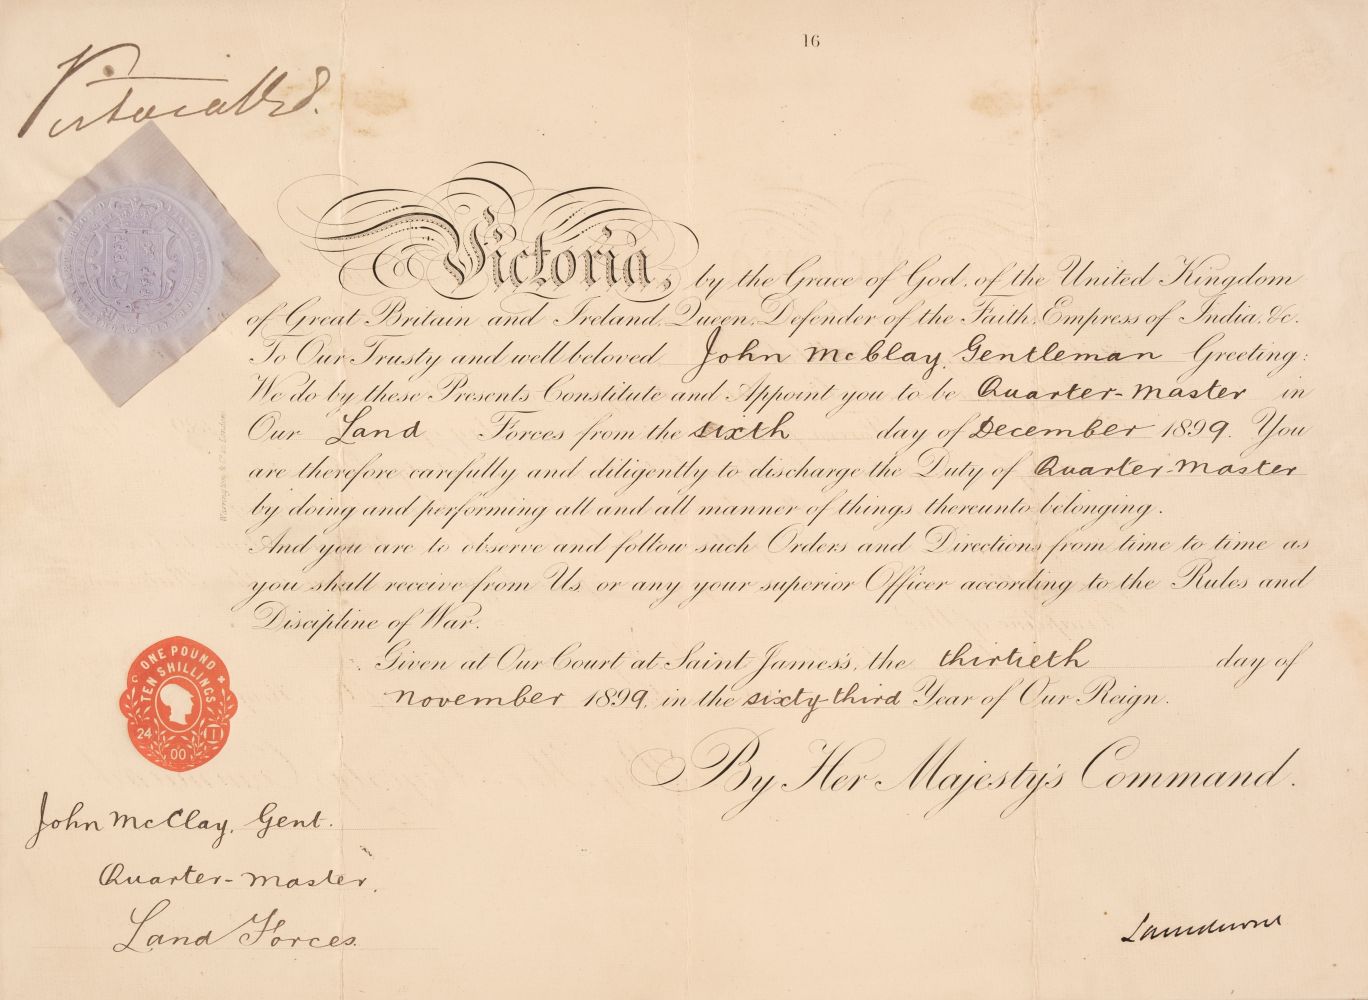 16
Victoria R I
Victoria, by the Grace of God, of the United Kingdom
of Great Britain and Ireland, Queen, Defender of the Faith, Empress of India, &c.
To Our Trusty and well beloved John McClay, Gentleman Greeting:
We do by these Presents Constitute and Appoint you to be Quarter-Master in
Our Land Forces from the sixth day of December 1899. You
are therefore carefully and diligently to discharge the Duty of Quarter-Master
by doing and performing all and all manner of things thereunto belonging.
And you are to observe and follow such Orders and Directions from time to time as
you shall receive from Us, or any your superior Officer according to the Rules and
Discipline of War.
Given at Our Court at Saint James's, the thirtieth day of
November 1899, in the sixty-third Year of Our Reign.
By Her Majesty's Command.
ONE POUND
TEN SHILLINGS
24
00
John McClay, Gent.
Quarter-Master,
Land Forces.
Lansdowne